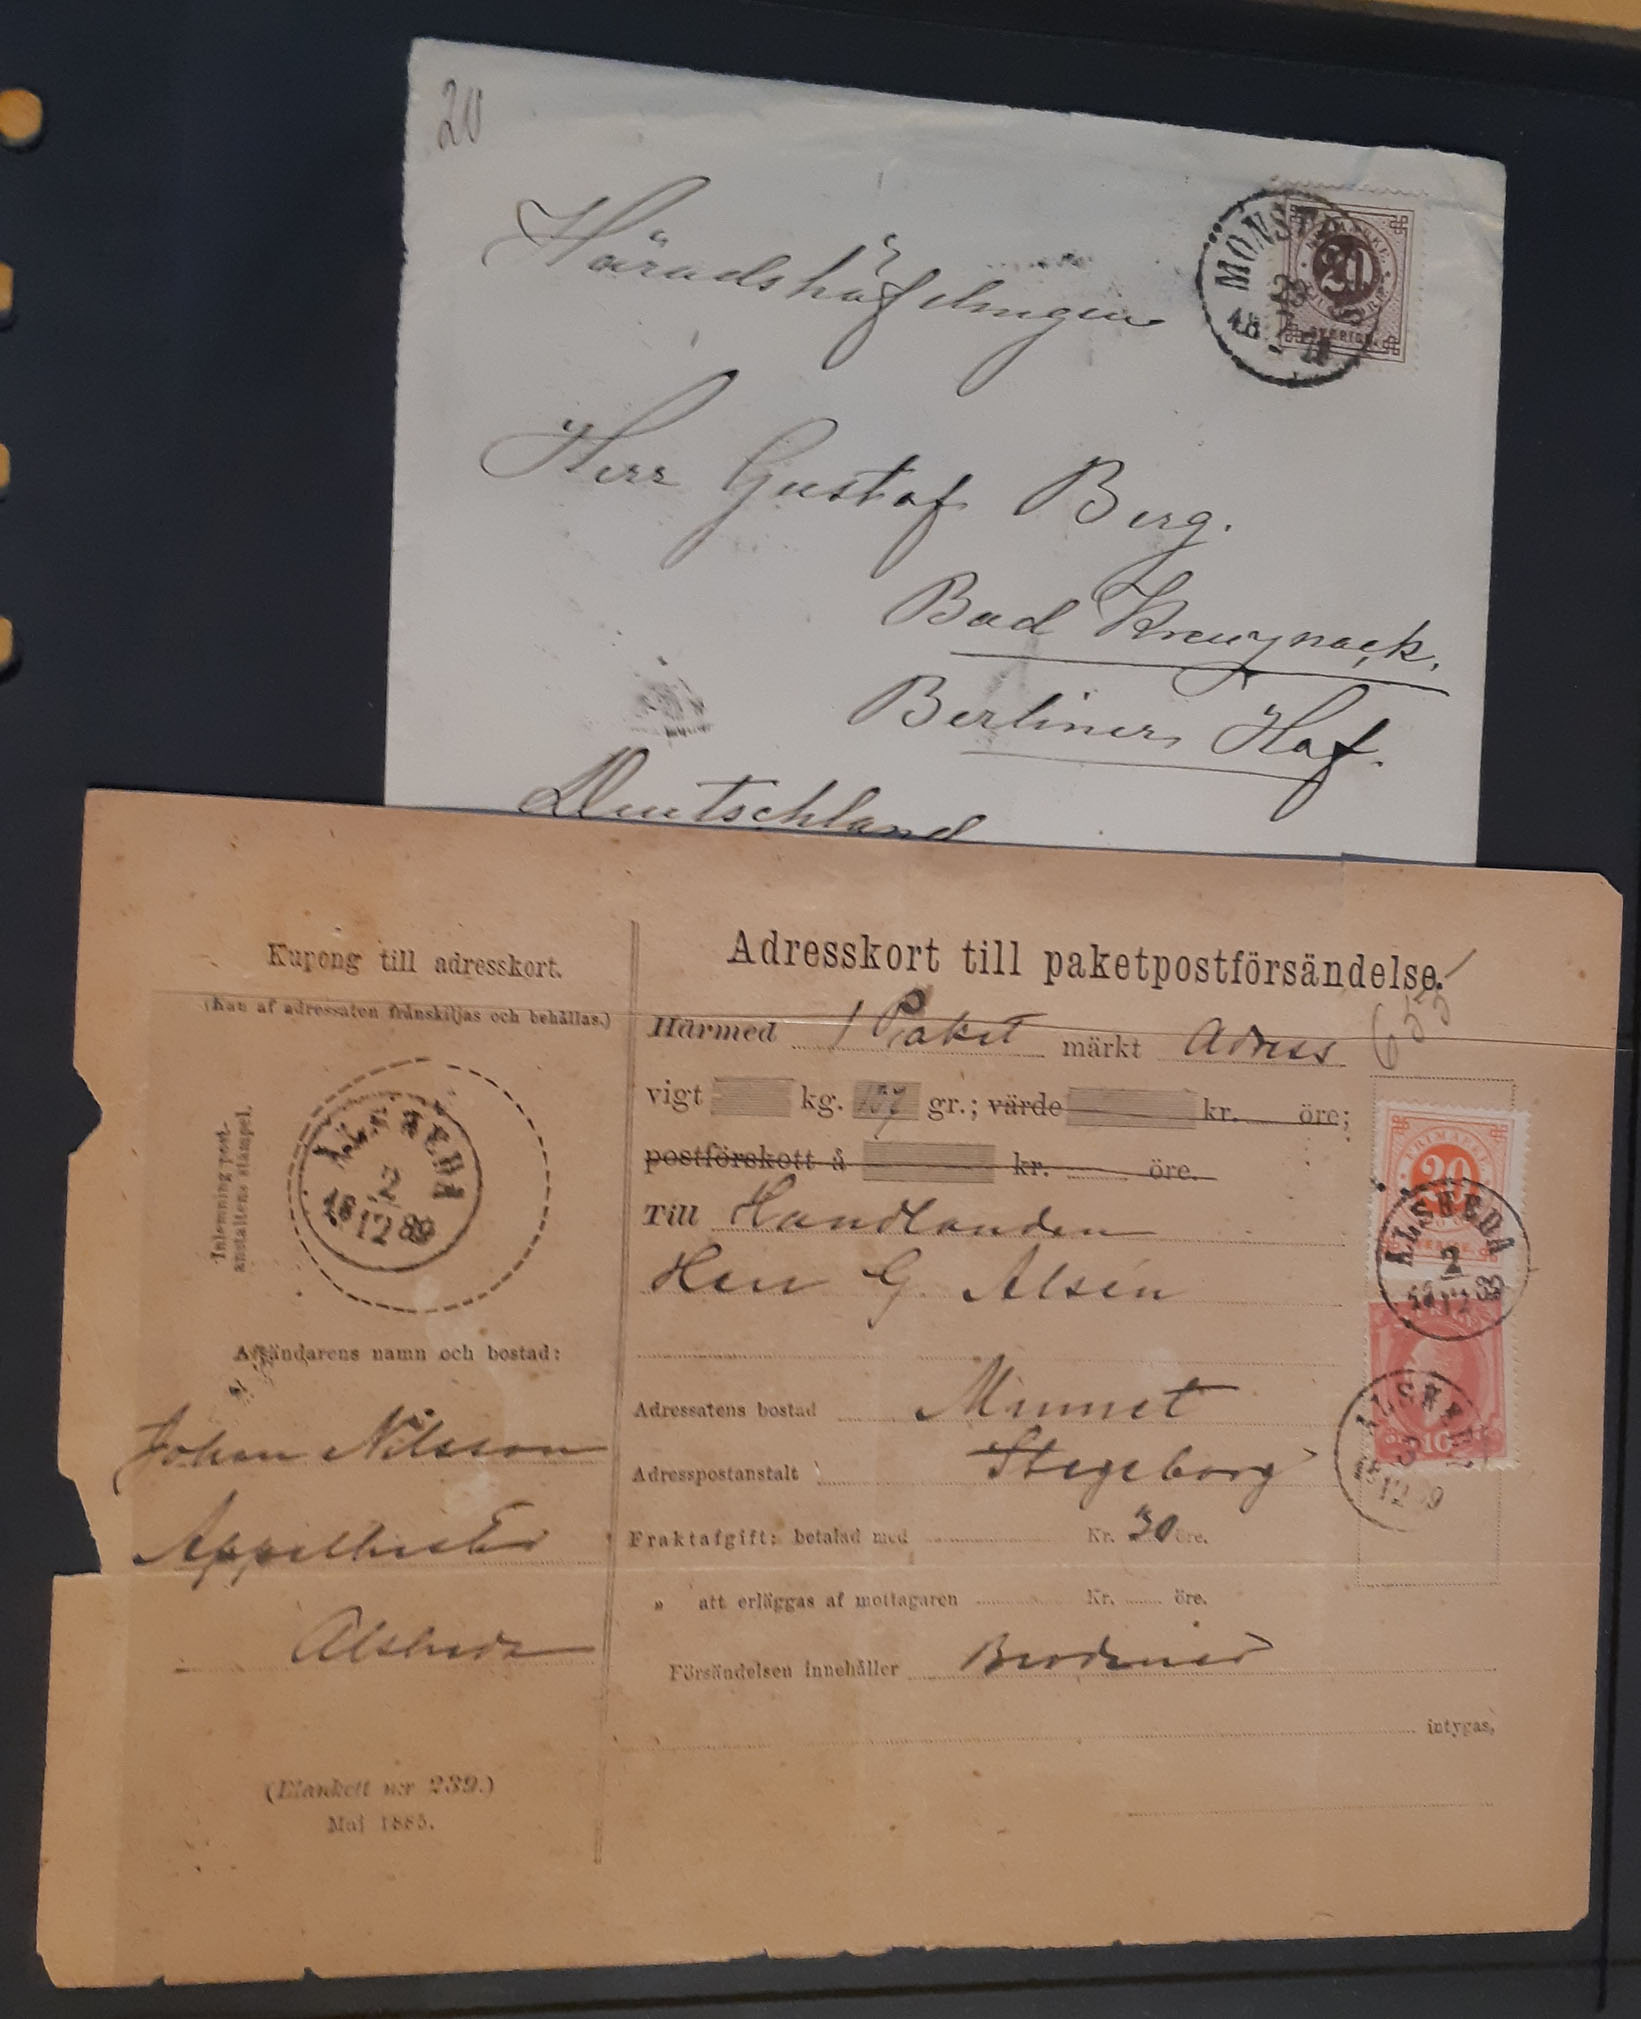 20
Häradshöfdingen
Herr Gustaf Berg.
Bad Kreuznack.
Berliner Hof.
Deutschland
MÖNST
29
7
18
SVERIGE
Kupong till adresskort.
(Kan af adressaten frånskiljas och behållas.)
Inlemning post-
anstaltens stämpel.
ALSHEDA
2
18 12 89
Afsändarens namn och bostad:
Johan Nilsson
Alsheda
(Blankett n:r 239.)
Maj 1885.
Adresskort till paketpostförsändelse.
655
Härmed 1 Paket märkt Adress
vigt kg. gr.; värde kr. öre;
postförskott å kr. öre.
Till Handlanden
Herr G. Alsén
Adressatens bostad Mumet
Adresspostanstalt Stegeborg
Fraktafgift: betalad med Kr. 30 öre.
„ att erläggas af mottagaren Kr. öre.
Försändelsen innehåller
intygas,
FRIMÄRKE
20
SVERIGE
ALSHEDA
2
18 12 89
10
ALSHEDA
12 89